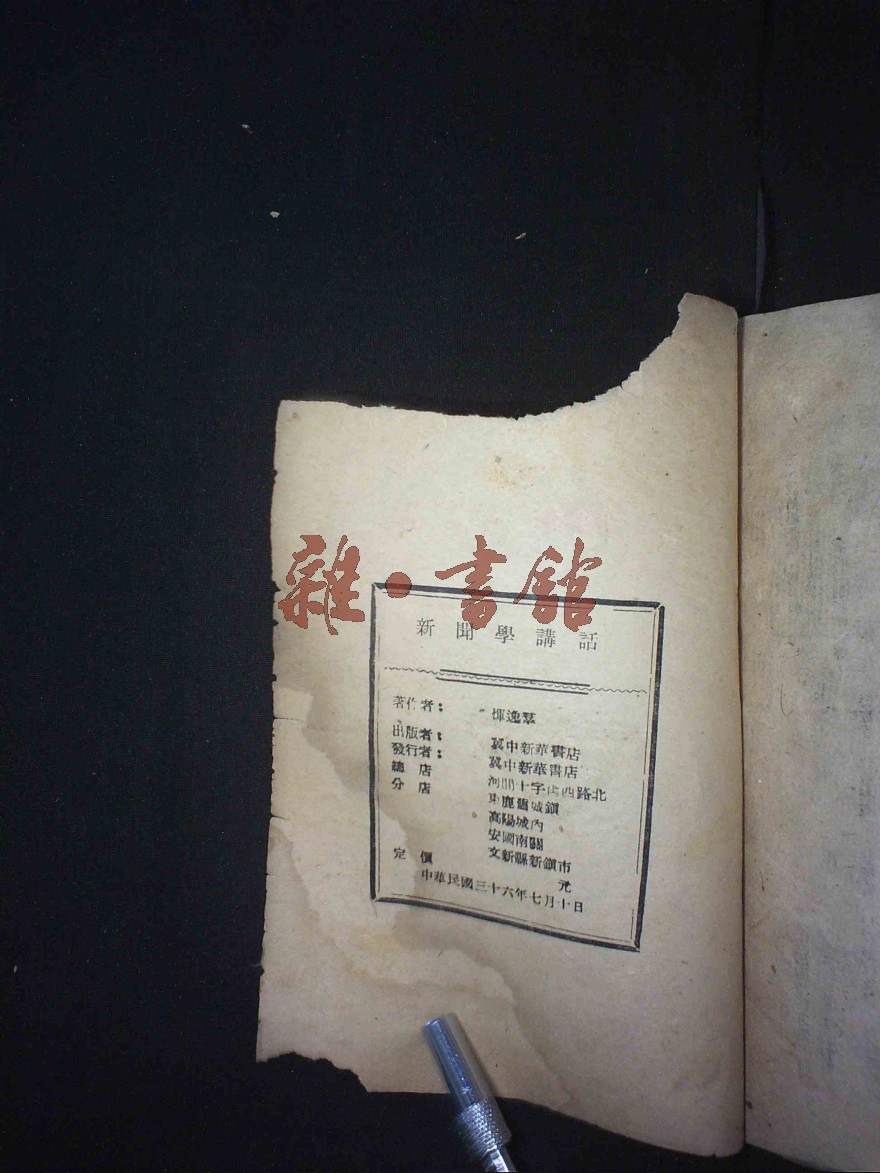 雜·書館
新聞學講話
著作者： 惲逸羣
出版者： 冀中新華書店
發行者： 冀中新華書店
總店 河間十字街西路北
分店 束鹿舊城鎮
高陽城內
安國南關
文新縣新鎮市
定價 元
中華民國三十六年七月十日